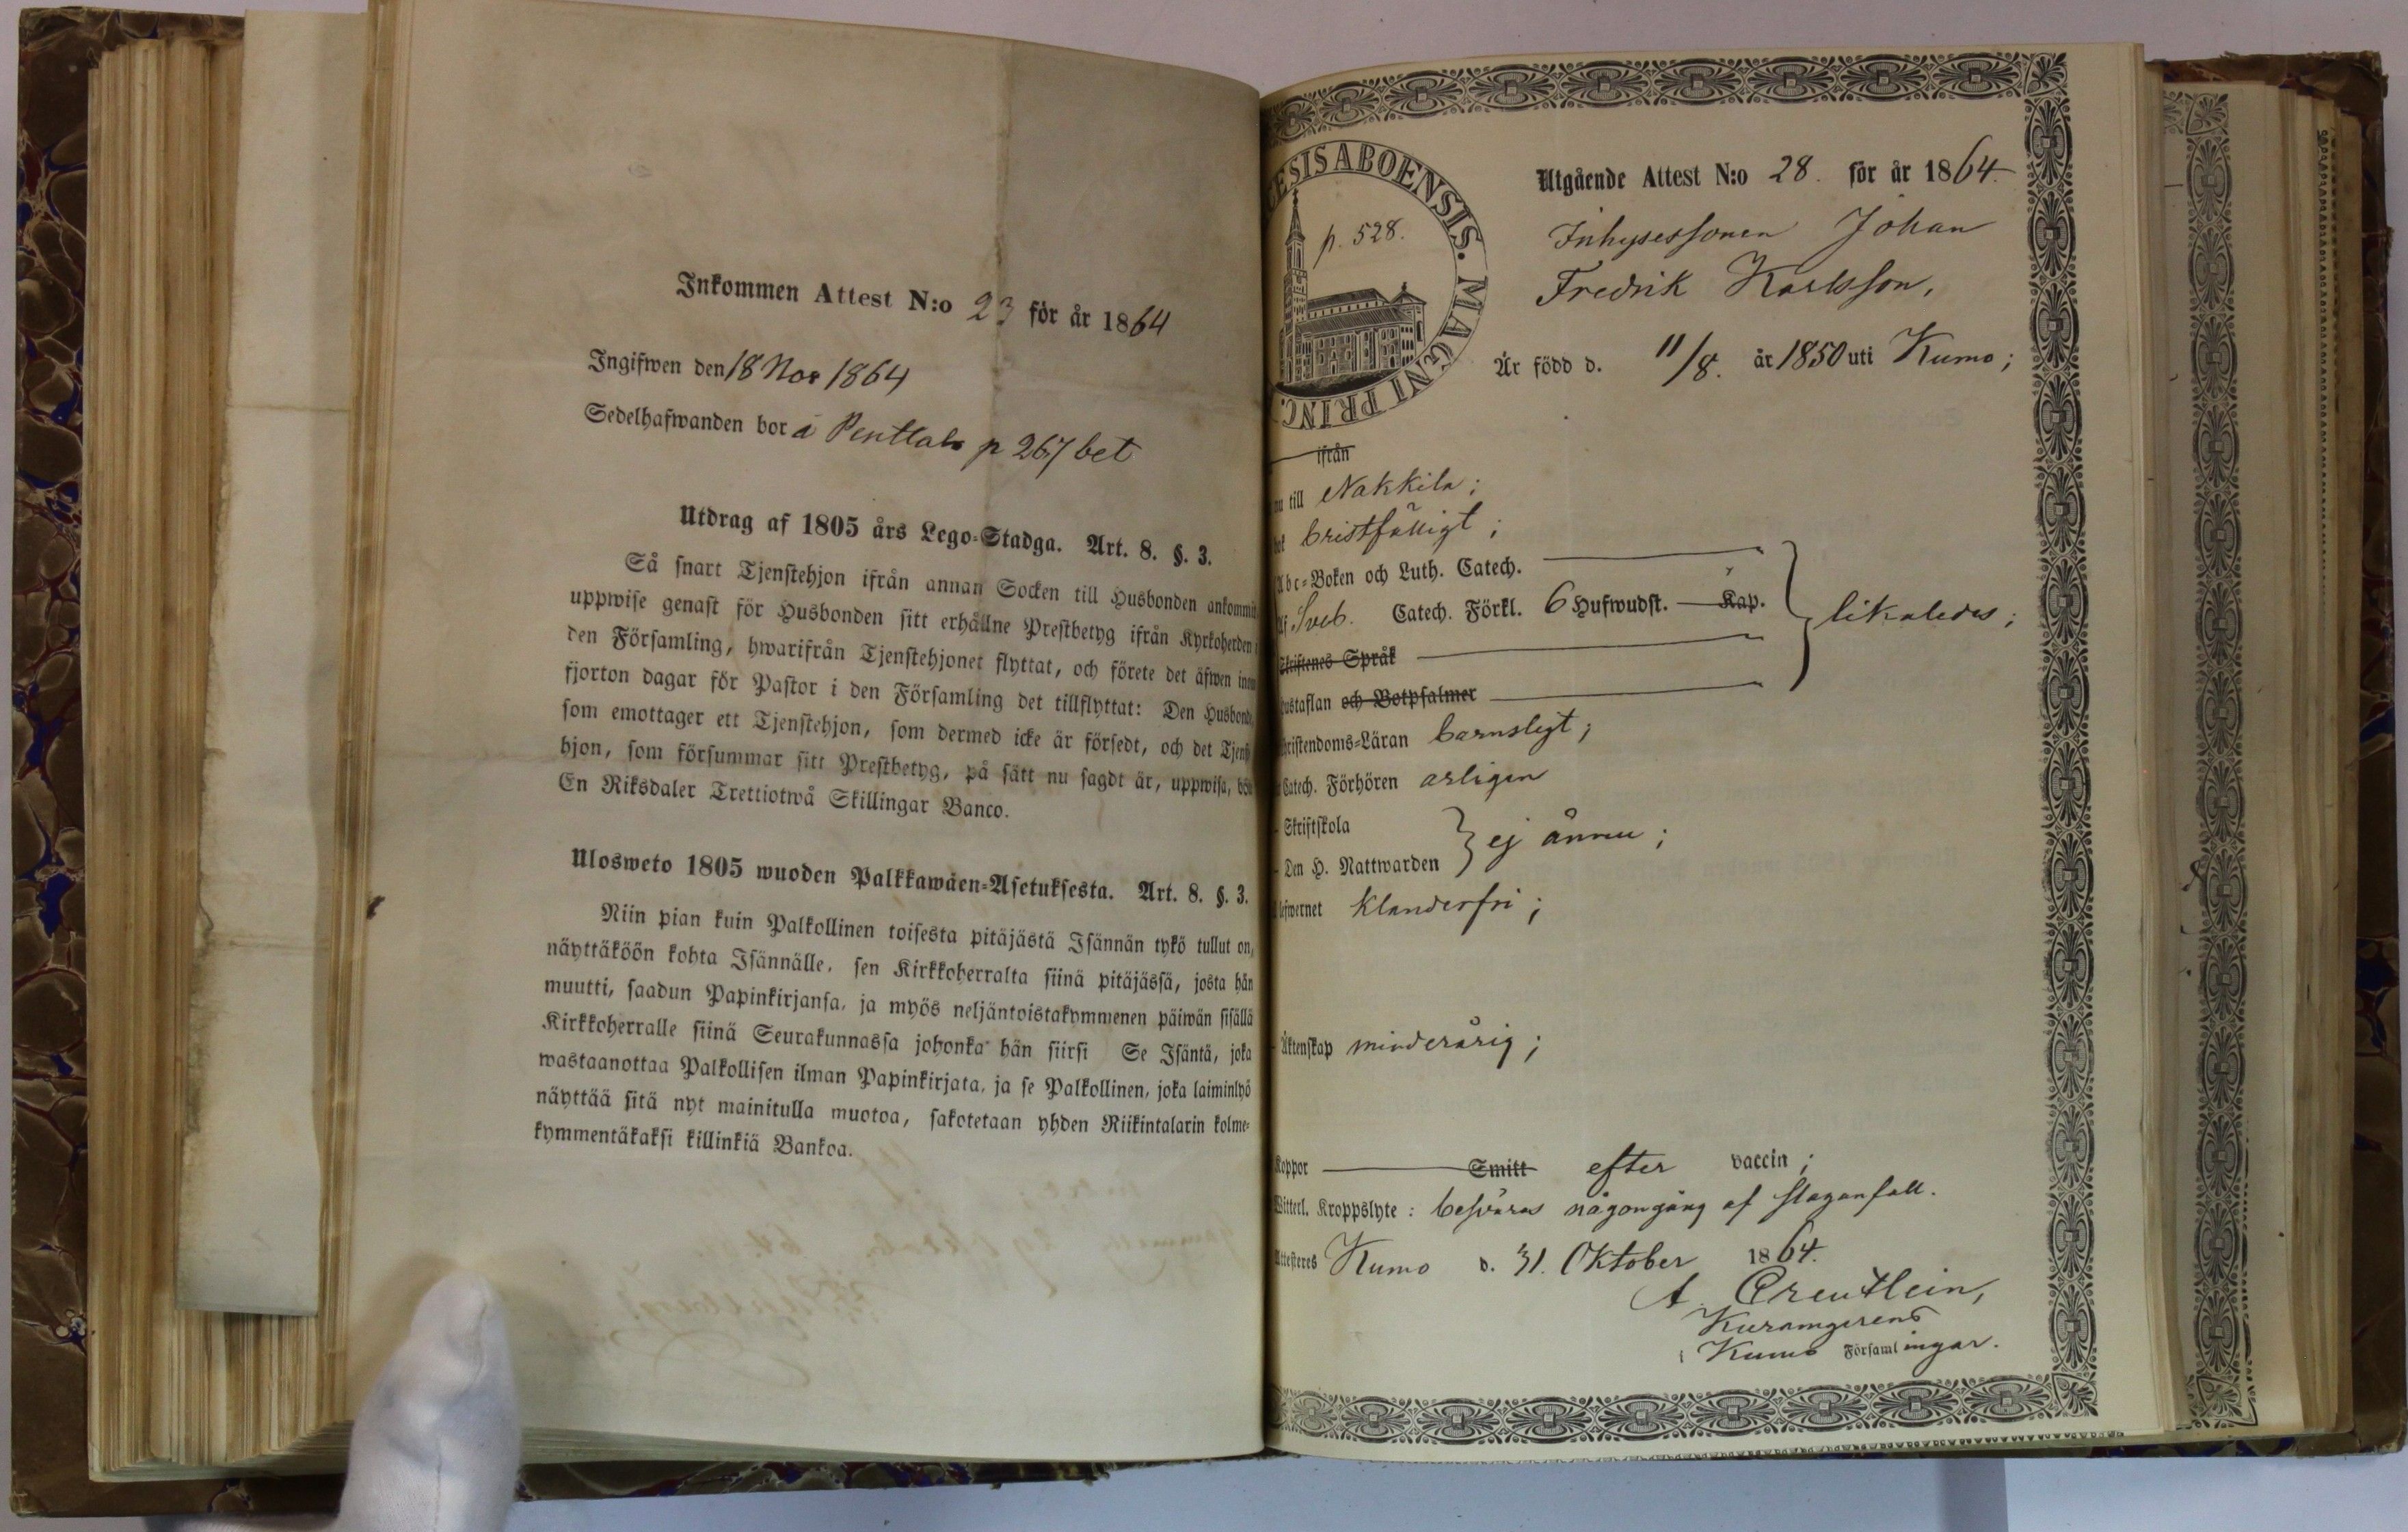 Inkommen Attest N:o 23 för år 1864
Ingifwen den 18 Nov 1864
Sedelhafwanden bor å Penttala p 267 bet
Utdrag af 1805 års Lego-Stadga. Art. 8. §. 3.
Så snart Tjenstehjon ifrån annan Socken till Husbonden ankommit
uppwise genast för Husbonden sitt erhållne Prestbetyg ifrån Kyrkoherden i
den Församling, hwarifrån Tjenstehjonet flyttat, och förete det äfwen inom
fjorton dagar för Pastor i den Församling det tillflyttat: Den Husbonde
som emottager ett Tjenstehjon, som dermed icke är försedt, och det Tjenste-
hjon, som försummar sitt Prestbetyg, på sätt nu sagdt är, uppwisa, böte
En Riksdaler Trettiotwå Skillingar Banco.
Ulosweto 1805 wuoden Palkkawäen-Asetuksesta. Art. 8. §. 3.
Niin pian kuin Palkollinen toisesta pitäjästä Isännän tykö tullut on,
näyttäköön kohta Isännälle, sen Kirkkoherralta siinä pitäjässä, josta hän
muutti, saadun Papinkirjansa, ja myös neljäntoistakymmenen päiwän sisällä
Kirkkoherralle siinä Seurakunnassa johonka hän siirsi Se Isäntä, joka
wastaanottaa Palkollisen ilman Papinkirjata, ja se Palkollinen, joka laiminlyö
näyttää sitä nyt mainitulla muotoa, sakotetaan yhden Riikintalarin kolme-
kymmentäkaksi killinkiä Bankoa.
ESIS ABOENSIS. MAGNI PRINC.
p. 528.
Utgående Attest N:o 28. för år 1864.
Inhysessonen Johan
Fredrik Karlsson,
Är född d. 11/8. år 1850 uti Kumo;
ifrån
nu till Nakkila;
bok bristfälligt;
Abc-Boken och Luth. Catech.
Af Sveb. Catech. Förkl. 6 Hufwudst. Kap.
likaledes;
Skriftenes Språk
Hustaflan och Botpsalmer
Christendoms-Läran barnsligt;
Catech. Förhören årligen
Skriftskola
Den H. Nattwarden
ej ännu;
lefwernet klanderfri;
Äktenskap minderårig;
Koppor Smitt efter vaccin;
Witterl. Kroppslyte: besväras någongång af slaganfall.
Attesteres Kumo d. 31. Oktober 1864.
A. Creutlein,
Kyramgerens
i Kumo Församlingar.